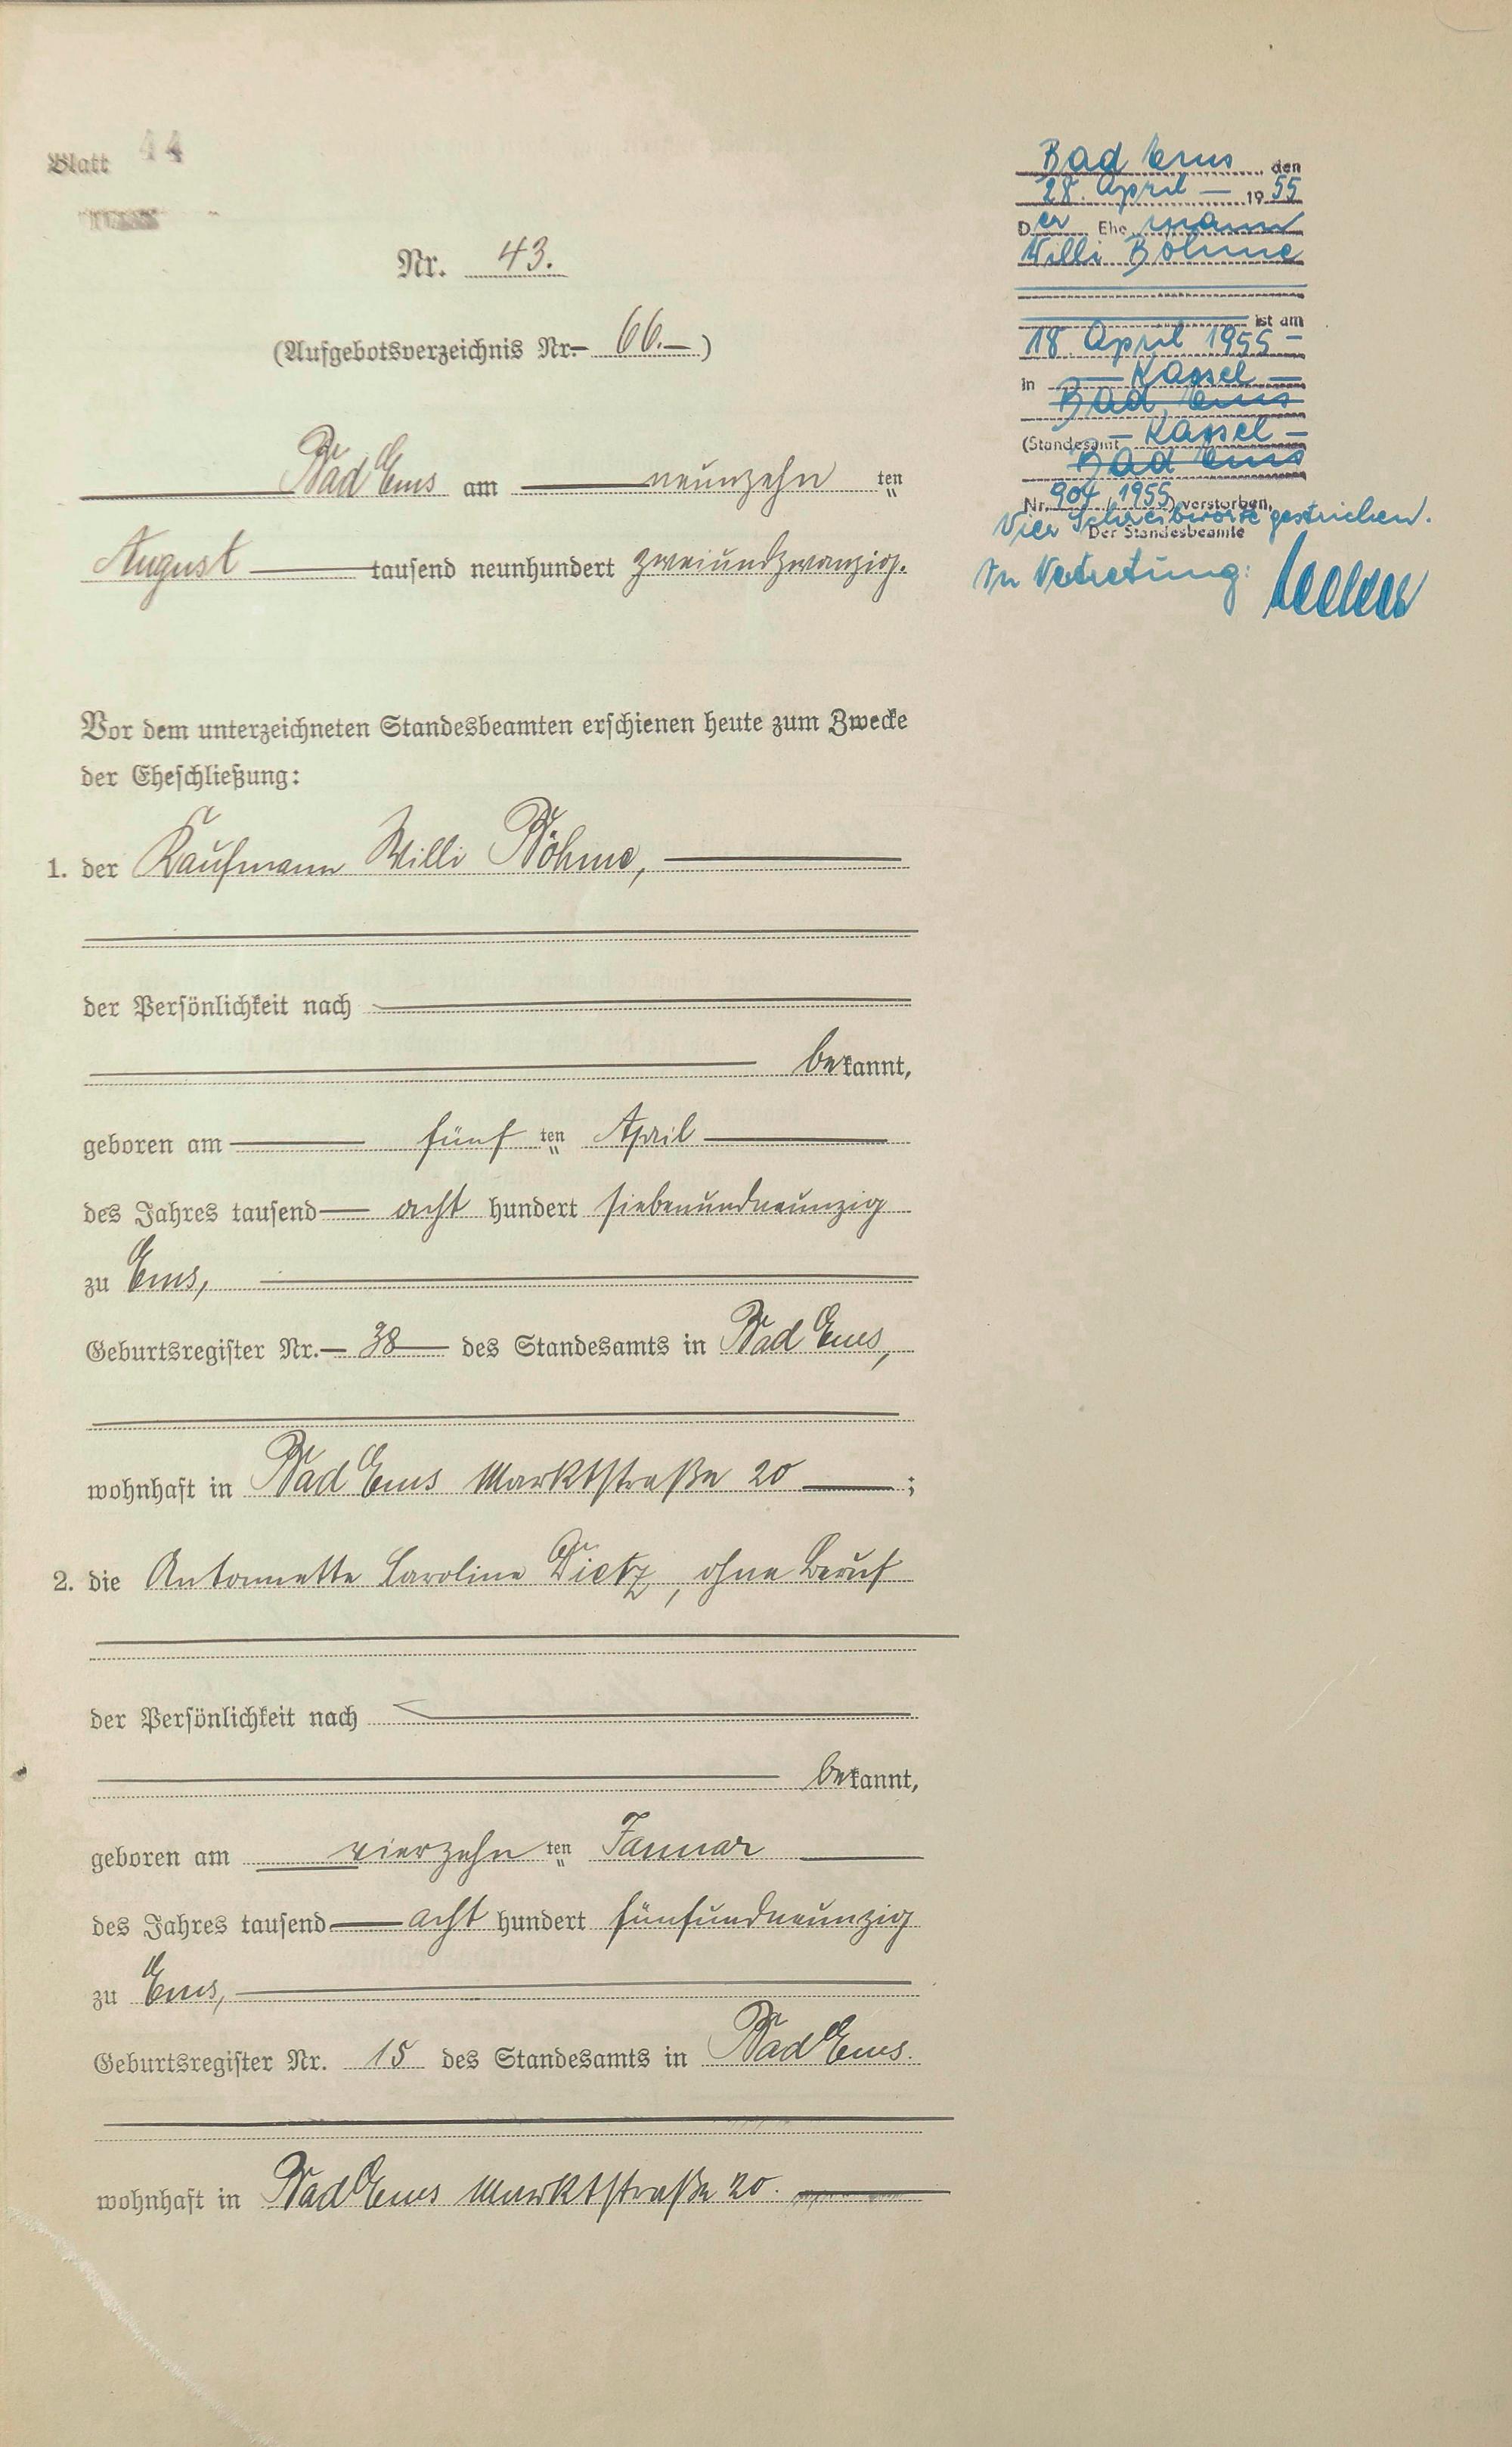 Blatt 44
Nr. 43.
(Aufgebotsverzeichnis Nr. 66.)
Bad Ems am neunzehn ten
August tausend neunhundert zweiundzwanzig.
Vor dem unterzeichneten Standesbeamten erschienen heute zum Zwecke
der Eheschließung:
1. der Kaufmann Willi Böhme,
der Persönlichkeit nach
bekannt,
geboren am fünf ten April
des Jahres tausend acht hundert siebenundneunzig
zu Ems,
Geburtsregister Nr. 38 des Standesamts in Bad Ems,
wohnhaft in Bad Ems Marktstraße 20 ;
2. die Antonnette Caroline Dietz, ohne Beruf
der Persönlichkeit nach
bekannt,
geboren am vierzehn ten Januar
des Jahres tausend acht hundert fünfundneunzig
zu Ems,
Geburtsregister Nr. 15 des Standesamts in Bad Ems.
wohnhaft in Bad Ems Marktstraße 20.
Bad Ems, den
28. April 1955
Der Ehemann
Willi Böhme
ist am
18. April 1955
in Kassel
Bad Ems
(Standesamt Kassel
Bad Ems
Nr. 904/1955) verstorben.
Vier Schreibworte gestrichen.
Der Standesbeamte
In Vertretung: